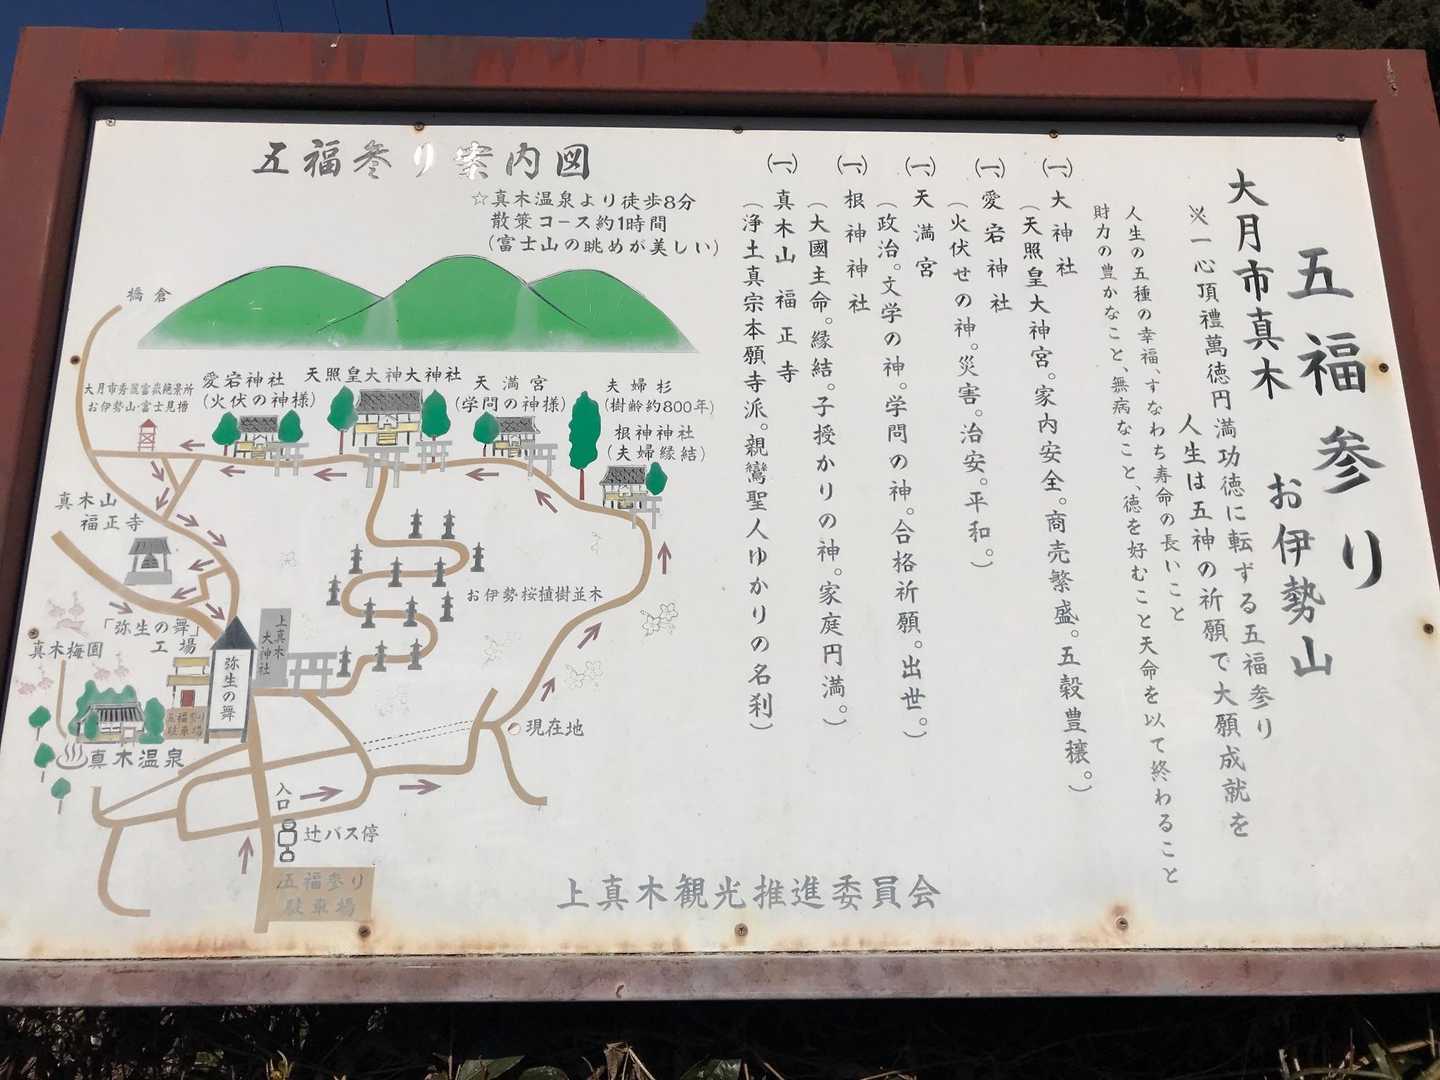 五福参り お伊勢山
大月市真木
※一心頂禮萬徳円満功徳に転ずる五福参り
人生は五神の祈願で大願成就を
人生の五種の幸福、すなわち寿命の長いこと
財力の豊かなこと、無病なこと、徳を好むこと天命を以て終わること
㈠大神社
(天照皇大神宮。家内安全。商売繁盛。五穀豊穣。)
㈠愛宕神社
(火伏せの神。災害。治安。平和。)
㈠天満宮
(政治。文学の神。学問の神。合格祈願。出世。)
㈠根神神社
(大國主命。縁結。子授かりの神。家庭円満。)
㈠真木山 福正寺
(浄土真宗本願寺派。親鸞聖人ゆかりの名刹)
五福参り案内図
☆真木温泉より徒歩8分
散策コース約1時間
(富士山の眺めが美しい)
橋倉
大月市秀麗富嶽絶景所
お伊勢山・富士見櫓
愛宕神社
(火伏の神様)
天照皇大神大神社
天満宮
(学問の神様)
夫婦杉
(樹齢約800年)
根神神社
(夫婦縁結)
真木山
福正寺
お伊勢桜植樹並木
「弥生の舞」
工場
真木梅園
上真木
大神社
弥生の舞
五福参り
駐車場
真木温泉
現在地
入口
辻バス停
五福参り
駐車場
上真木観光推進委員会